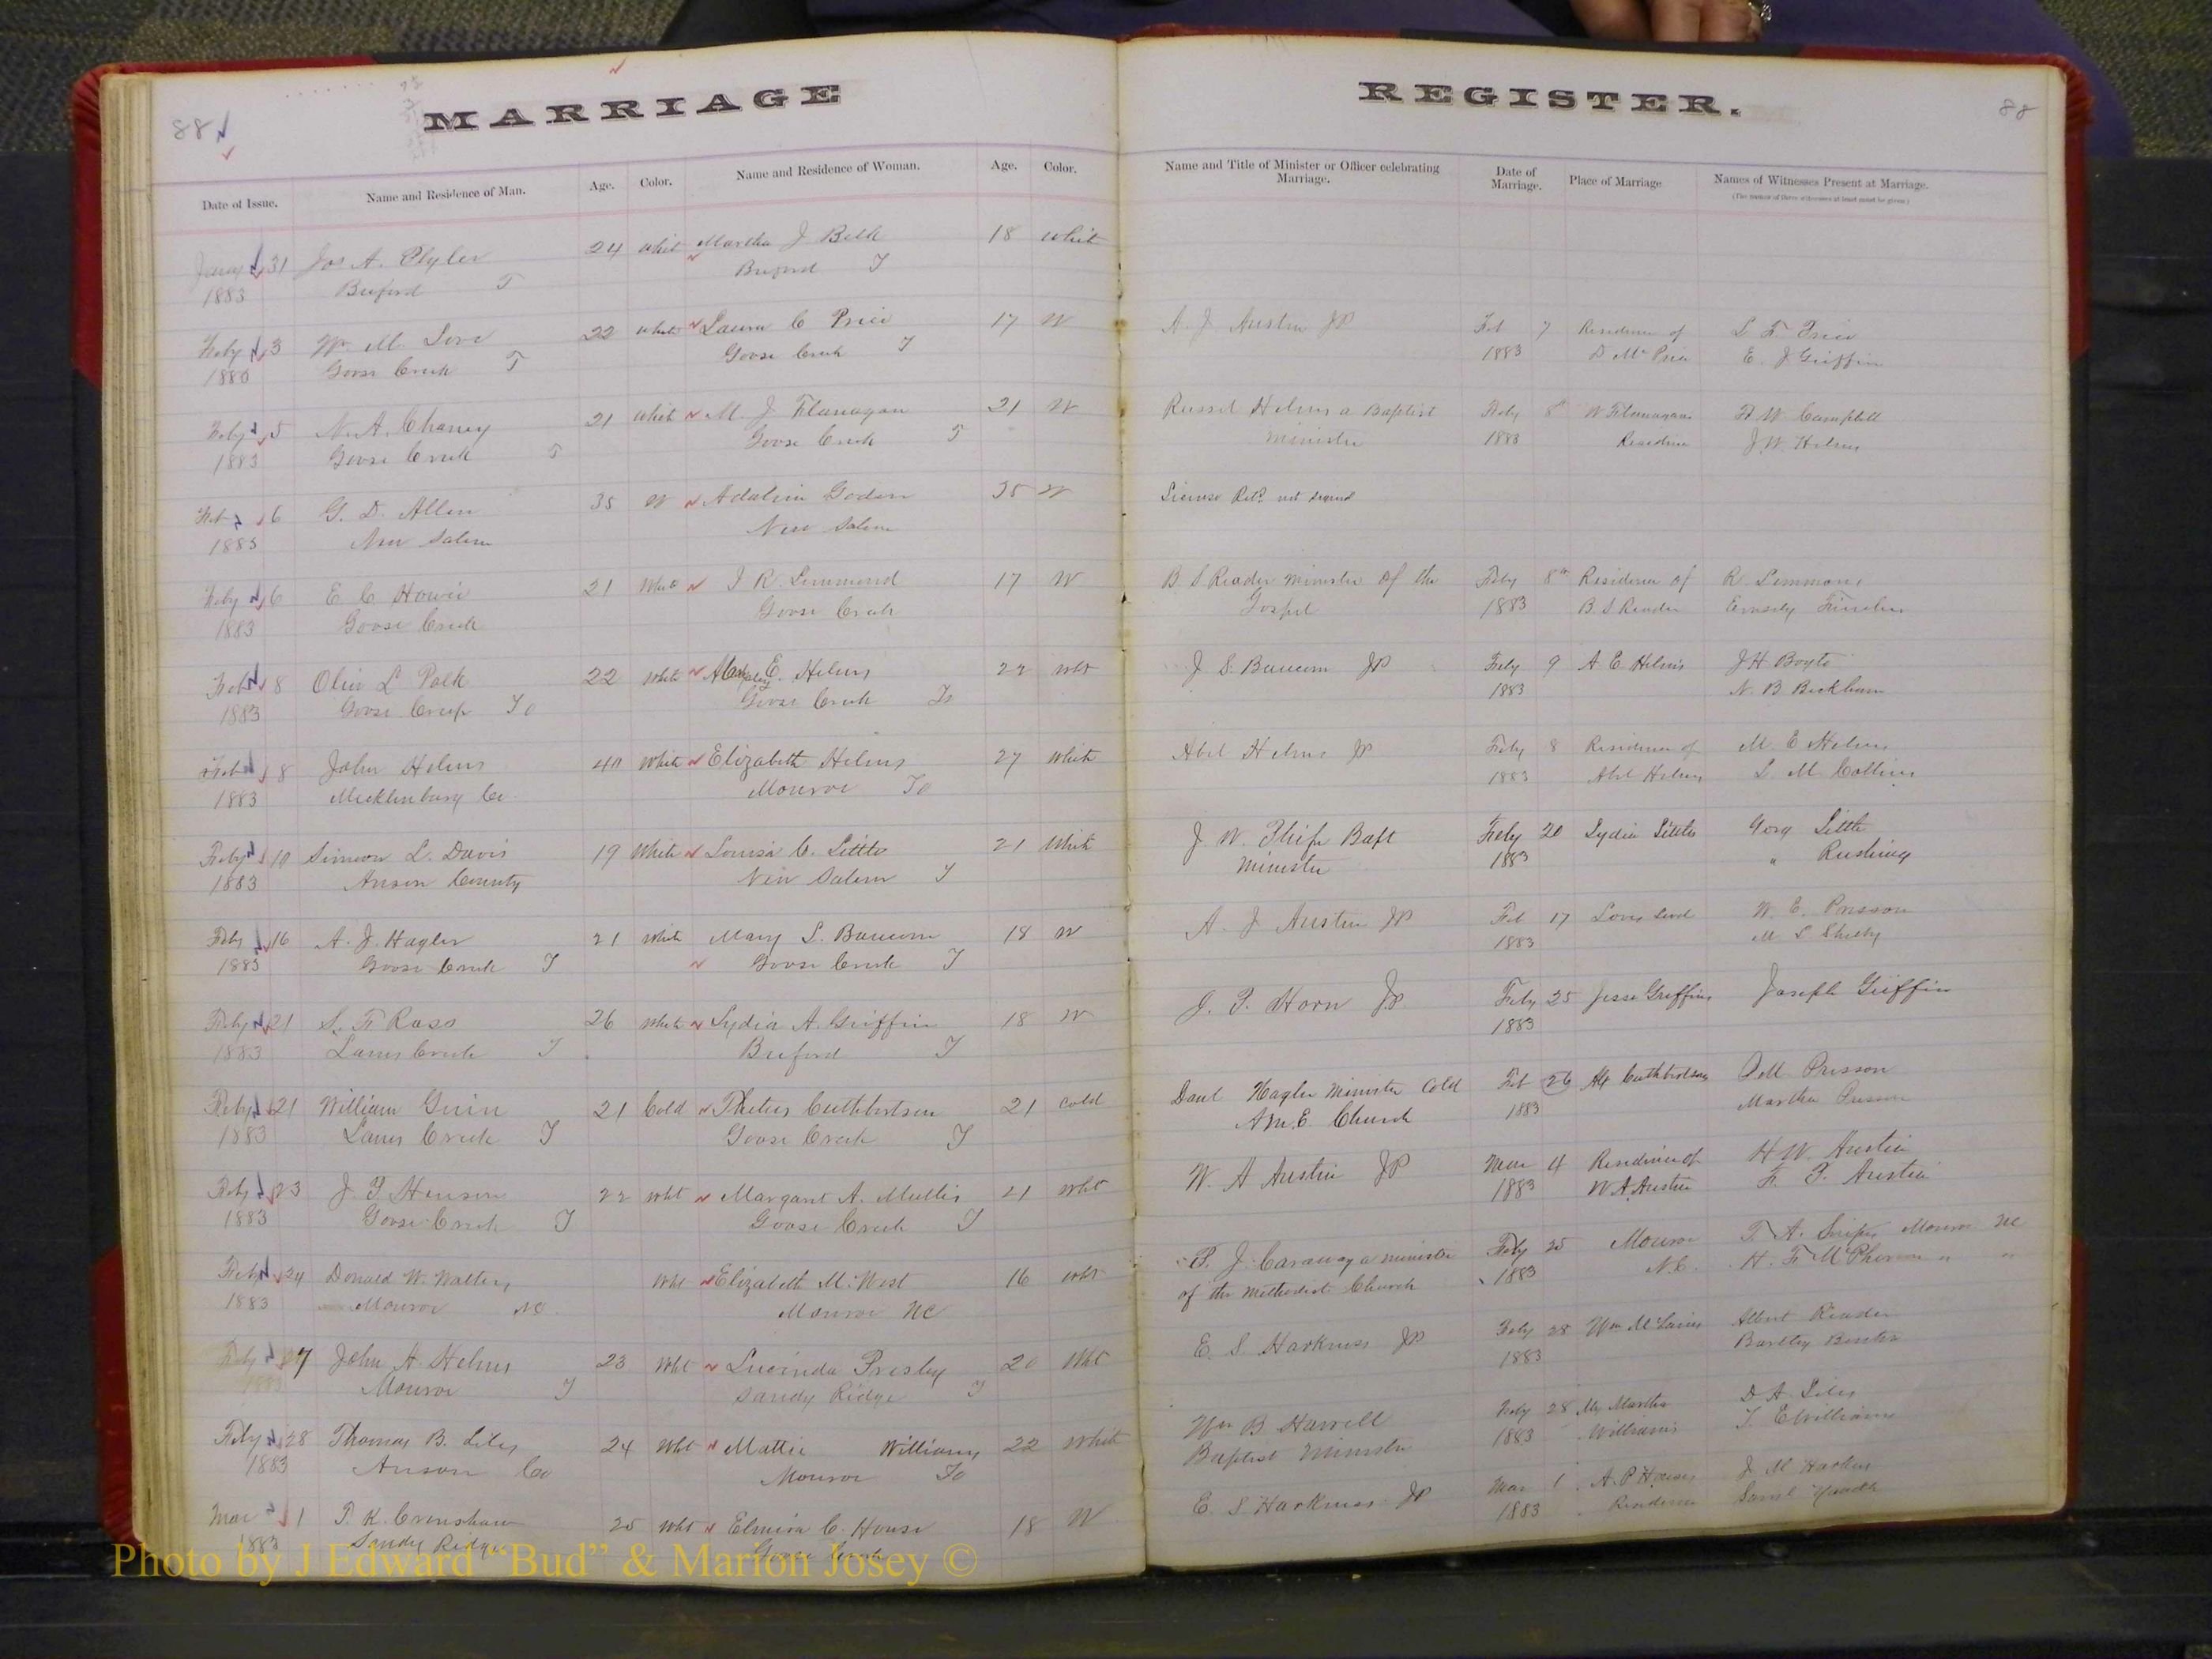 MARRIAGE REGISTER.
88 88
Date of Issue. Name and Residence of Man. Age. Color. Name and Residence of Woman. Age. Color. Name and Title of Minister or Officer celebrating Marriage. Date of Marriage. Place of Marriage Names of Witnesses Present at Marriage.
(The names of three witnesses at least must be given.)
31 Jos A. Plyler 24 Whit Martha J Belk 18 White
1883 Buford T Buford T
Feby 3 W. M. Love 22 White Laura C Price 17 W A. J Austin JP Feb 7 Residence of L F Price
1883 Goose Creek T Goose Creek T 1883 D Mc Price E. J Griffin
Feby 5 N. A. Chaney 21 Whit M. J Flanagan 21 W Russel Helms a Baptist Feby 8th W Flanagans W Campbell
1883 Goose Creek T Goose Creek T Minister 1883 Residence J. W. Helms
Feb 6 G. D. Allen 35 W Adaline Goden 35 W License Retd not signed
1883 New Salem New Salem
Feby 6 E C Howie 21 White J R. Lemmond 17 W B. S Reader Minister of the Feby 8th Residence of R. Lemmond
1883 Goose Creek Goose Creek Gospel 1883 B. S Reader
Feb 8 Oliver L Polk 22 White E. Helms 22 Wht J S. Baucom JP Feby 9 A E Helms J H Boyte
1883 Goose Creek To Goose Creek To 1883 N. B Beckham
Feb 8 John Helms 40 White Elizabeth Helms 27 White Abel Helms JP Feby 8 Residence of M E Helms
1883 Mecklenburg Co Monroe To 1883 Abel Helms L M Collins
Feby 10 Simeon L. Davis 19 White Louisa C. Little 21 White J W. Baft Feby 20 Lydia Little Georg Little
1883 Anson County New Salem T Minister 1883 " Rushing
Feby 16 A. J. Hagler 21 White Mary L. Baucom 18 W A. J Austin JP Feb 17 W. E. Presson
1883 Goose Creek T Goose Creek T 1883 M L
Feby 21 S. F. Rass 26 White Lydia A. Griffin 18 W J. T. Horn JP Feby 25 Jesse Griffins Joseph Griffin
1883 Lanes Creek T Buford T 1883
Feby 21 William Guin 21 Cold Cuthbertson 21 Cold Danl Hagler Minister Cold Feb 26 Cuthbertson Dell Presson
1883 Lanes Creek T Goose Creek T A.M.E. Church 1883 Martha Presson
Feby 23 J. T. Henson 22 Wht Margaret A. Mullis 21 Wht W. A Austin JP Mar 4 Residence of H W. Austin
1883 Goose Creek T Goose Creek T 1883 W. A. Austin F. T. Austin
Feby 24 Donald W. Walters Wht Elizabeth M. West 16 Wht T. J. Caraway a minister Feby 25 Monroe T. A. Monroe NC
1883 Monroe NC Monroe NC of the Methodist Church 1883 N.C. H. F McPherson " "
Feby 27 John H. Helms 23 Wht Lucinda Presley 20 Wht E. S. Harkness JP Feby 28 Wm McLaries Albert Reader
1883 Monroe T Sandy Ridge T 1883 Bartley
Feby 28 Thomas B. Liles 24 Wht Mattie Williams 22 White Wm B Harrell Feby 28 Mrs Martha D A Liles
1883 Anson Co Monroe To Baptist Minister 1883 Williams T. E Williams
Mar 1 T. K. Crenshaw 25 Wht Elmira C. House 18 W E. S Harkness JP Mar 1 A. P. Houses J M
1883 Sandy Ridge Goose Creek 1883 Residence
Photo by J Edward “Bud” & Marion Josey ©